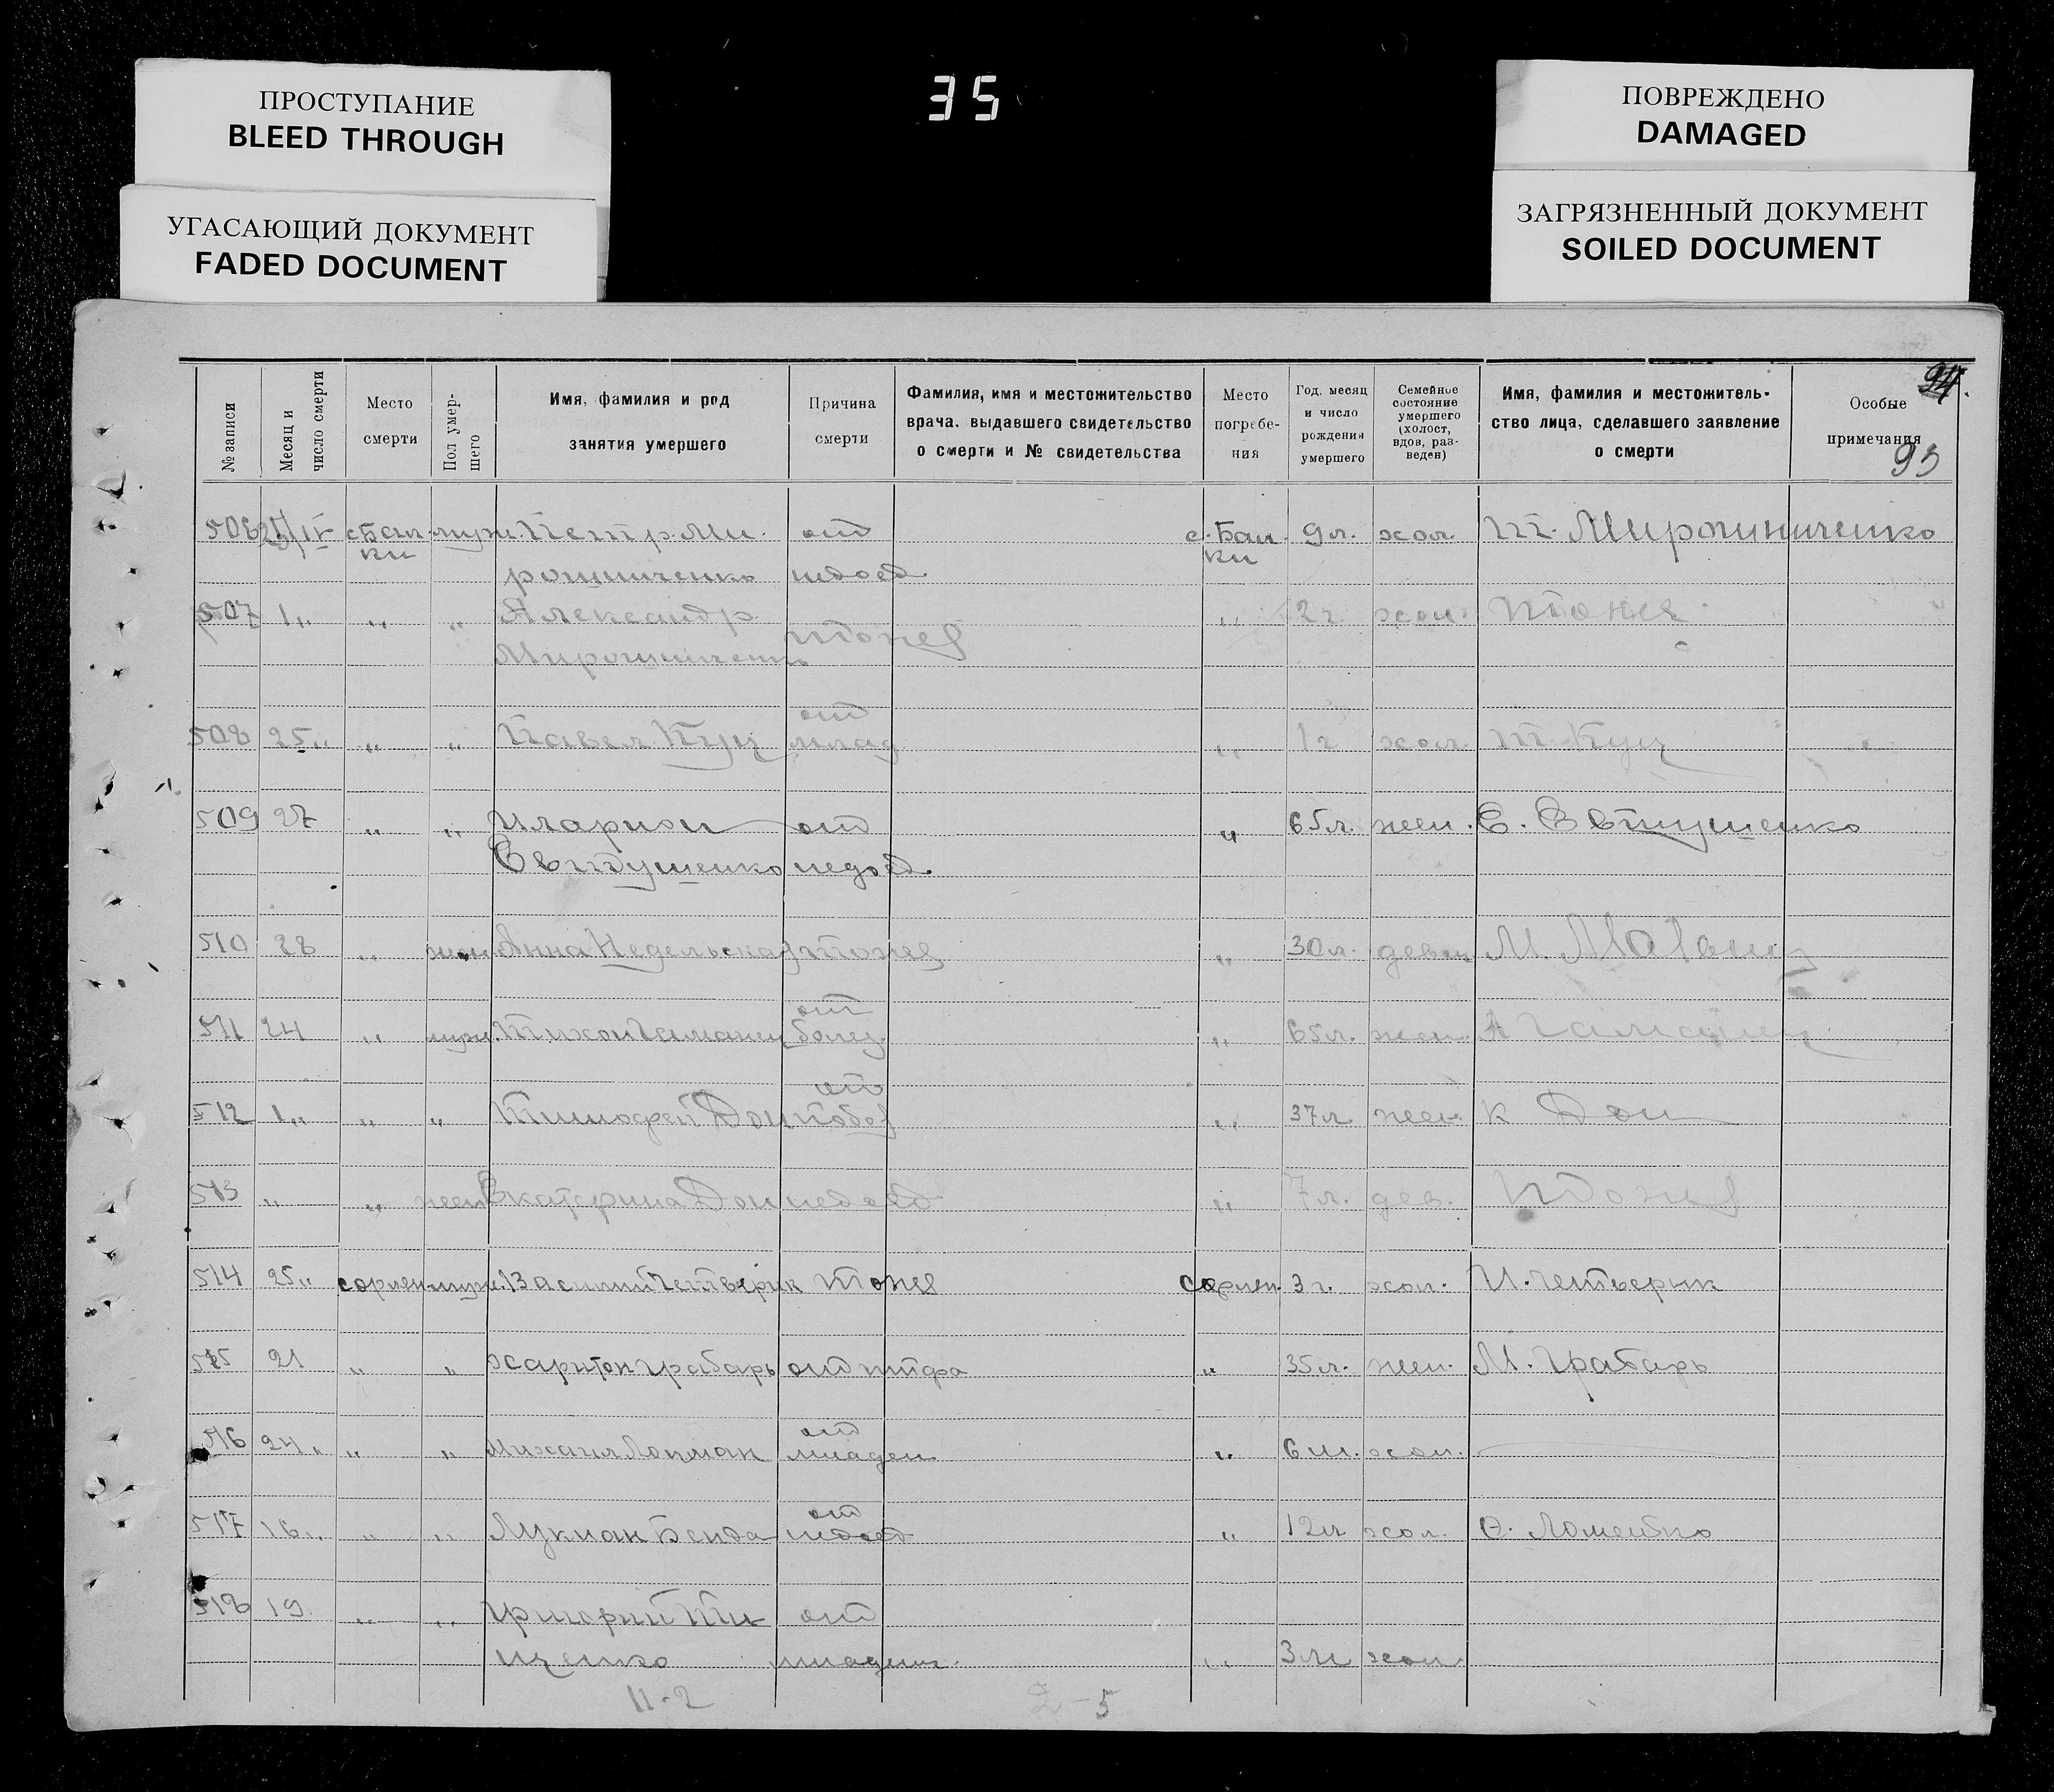 35
ПРОСТУПАНИЕ
BLEED THROUGH
УГАСАЮЩИЙ ДОКУМЕНТ
FADED DOCUMENT
ПОВРЕЖДЕНО
DAMAGED
ЗАГРЯЗНЕННЫЙ ДОКУМЕНТ
SOILED DOCUMENT
94.
93
№ записи
Месяц и число смерти
Место смерти
Пол умер-шего
Имя, фамилия и род занятия умершего
Причина смерти
Фамилия, имя и местожительство врача, выдавшего свидетельство о смерти и № свидетельства
Место погребе-ния
Год, месяц и число рождения умершего
Семейное состояние умершего (холост, вдов, раз-веден)
Имя, фамилия и местожитель-ство лица, сделавшего заявление о смерти
Особые примечания
506 муж. Петр Ми- от с. Бан- 9л. хол. Мирошниченко
ки ки
рошниченко недоед
507 1 " " " Александр тоже " 2г. хол. тоже
Мирошниченко
от
508 25 " " " Павел Куц млад " 1г хол. Куц
509 27 " " Иларион от " 65л. жен. Е. Евтушенко
Евтушенко недоед.
510 28 " жен. Анна Недельская тоже " 30л. М.
от
511 24 " муж. Тихон Гаманец болез. " 65л. жен. А Гаманец
от
512 1 " " " Тимофей Дон " 37л жен. К Дон
513 " " жен Екатерина Дон недоед " 7л. дев. тоже
514 25 " муж. Василий Четверик тоже 3г. хол. И. Четверик
515 21 " " Харитон Грабарь от тифа " 35л. жен. М. Грабарь
от
516 24 " " " Михаил Лопман младен " 6м. хол.
от
517 16 " " " Лукиан Бенда недоед " хол.
518 19 " " Григорий Ти- от
щенко младен. " 3м хол.
11-2 2-5